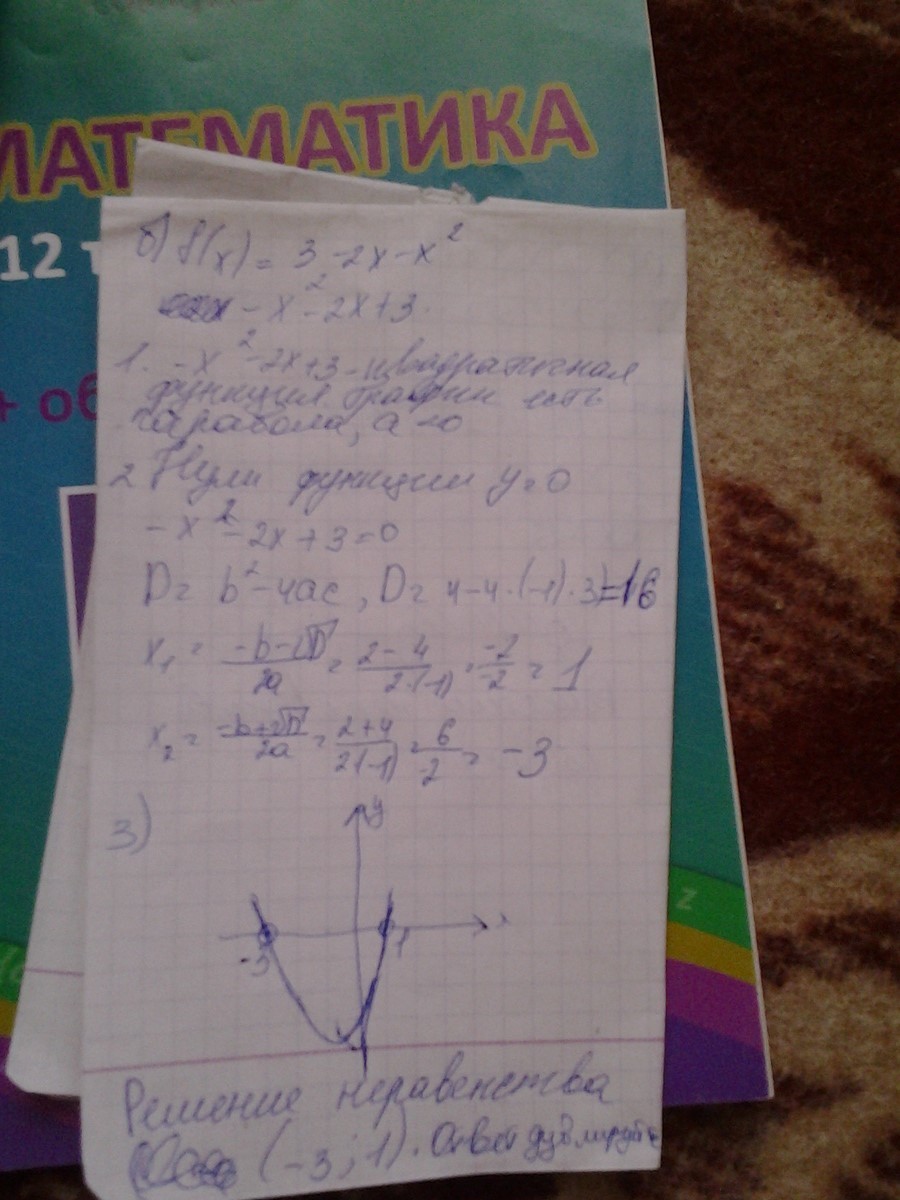 МАТЕМАТИКА
12 т
+ об
б) f(x) = 3 - 2x - x²
- x² - 2x + 3.
1. -x² - 2x + 3 - квадратичная
функция график есть
парабола, a < 0
2 Нули функции y = 0
- x² - 2x + 3 = 0
D = b² - 4ac, D = 4 - 4·(-1)·3) = 16
x₁ = -b-√D/2a = 2-4/2·(-1) = -2/-2 = 1
x₂ = -b+√D/2a = 2+4/2(-1) = 6/-2 = -3
3)
y
x
-3
1
z
Решение неравенства
(-3; 1). Ответ дублируйте